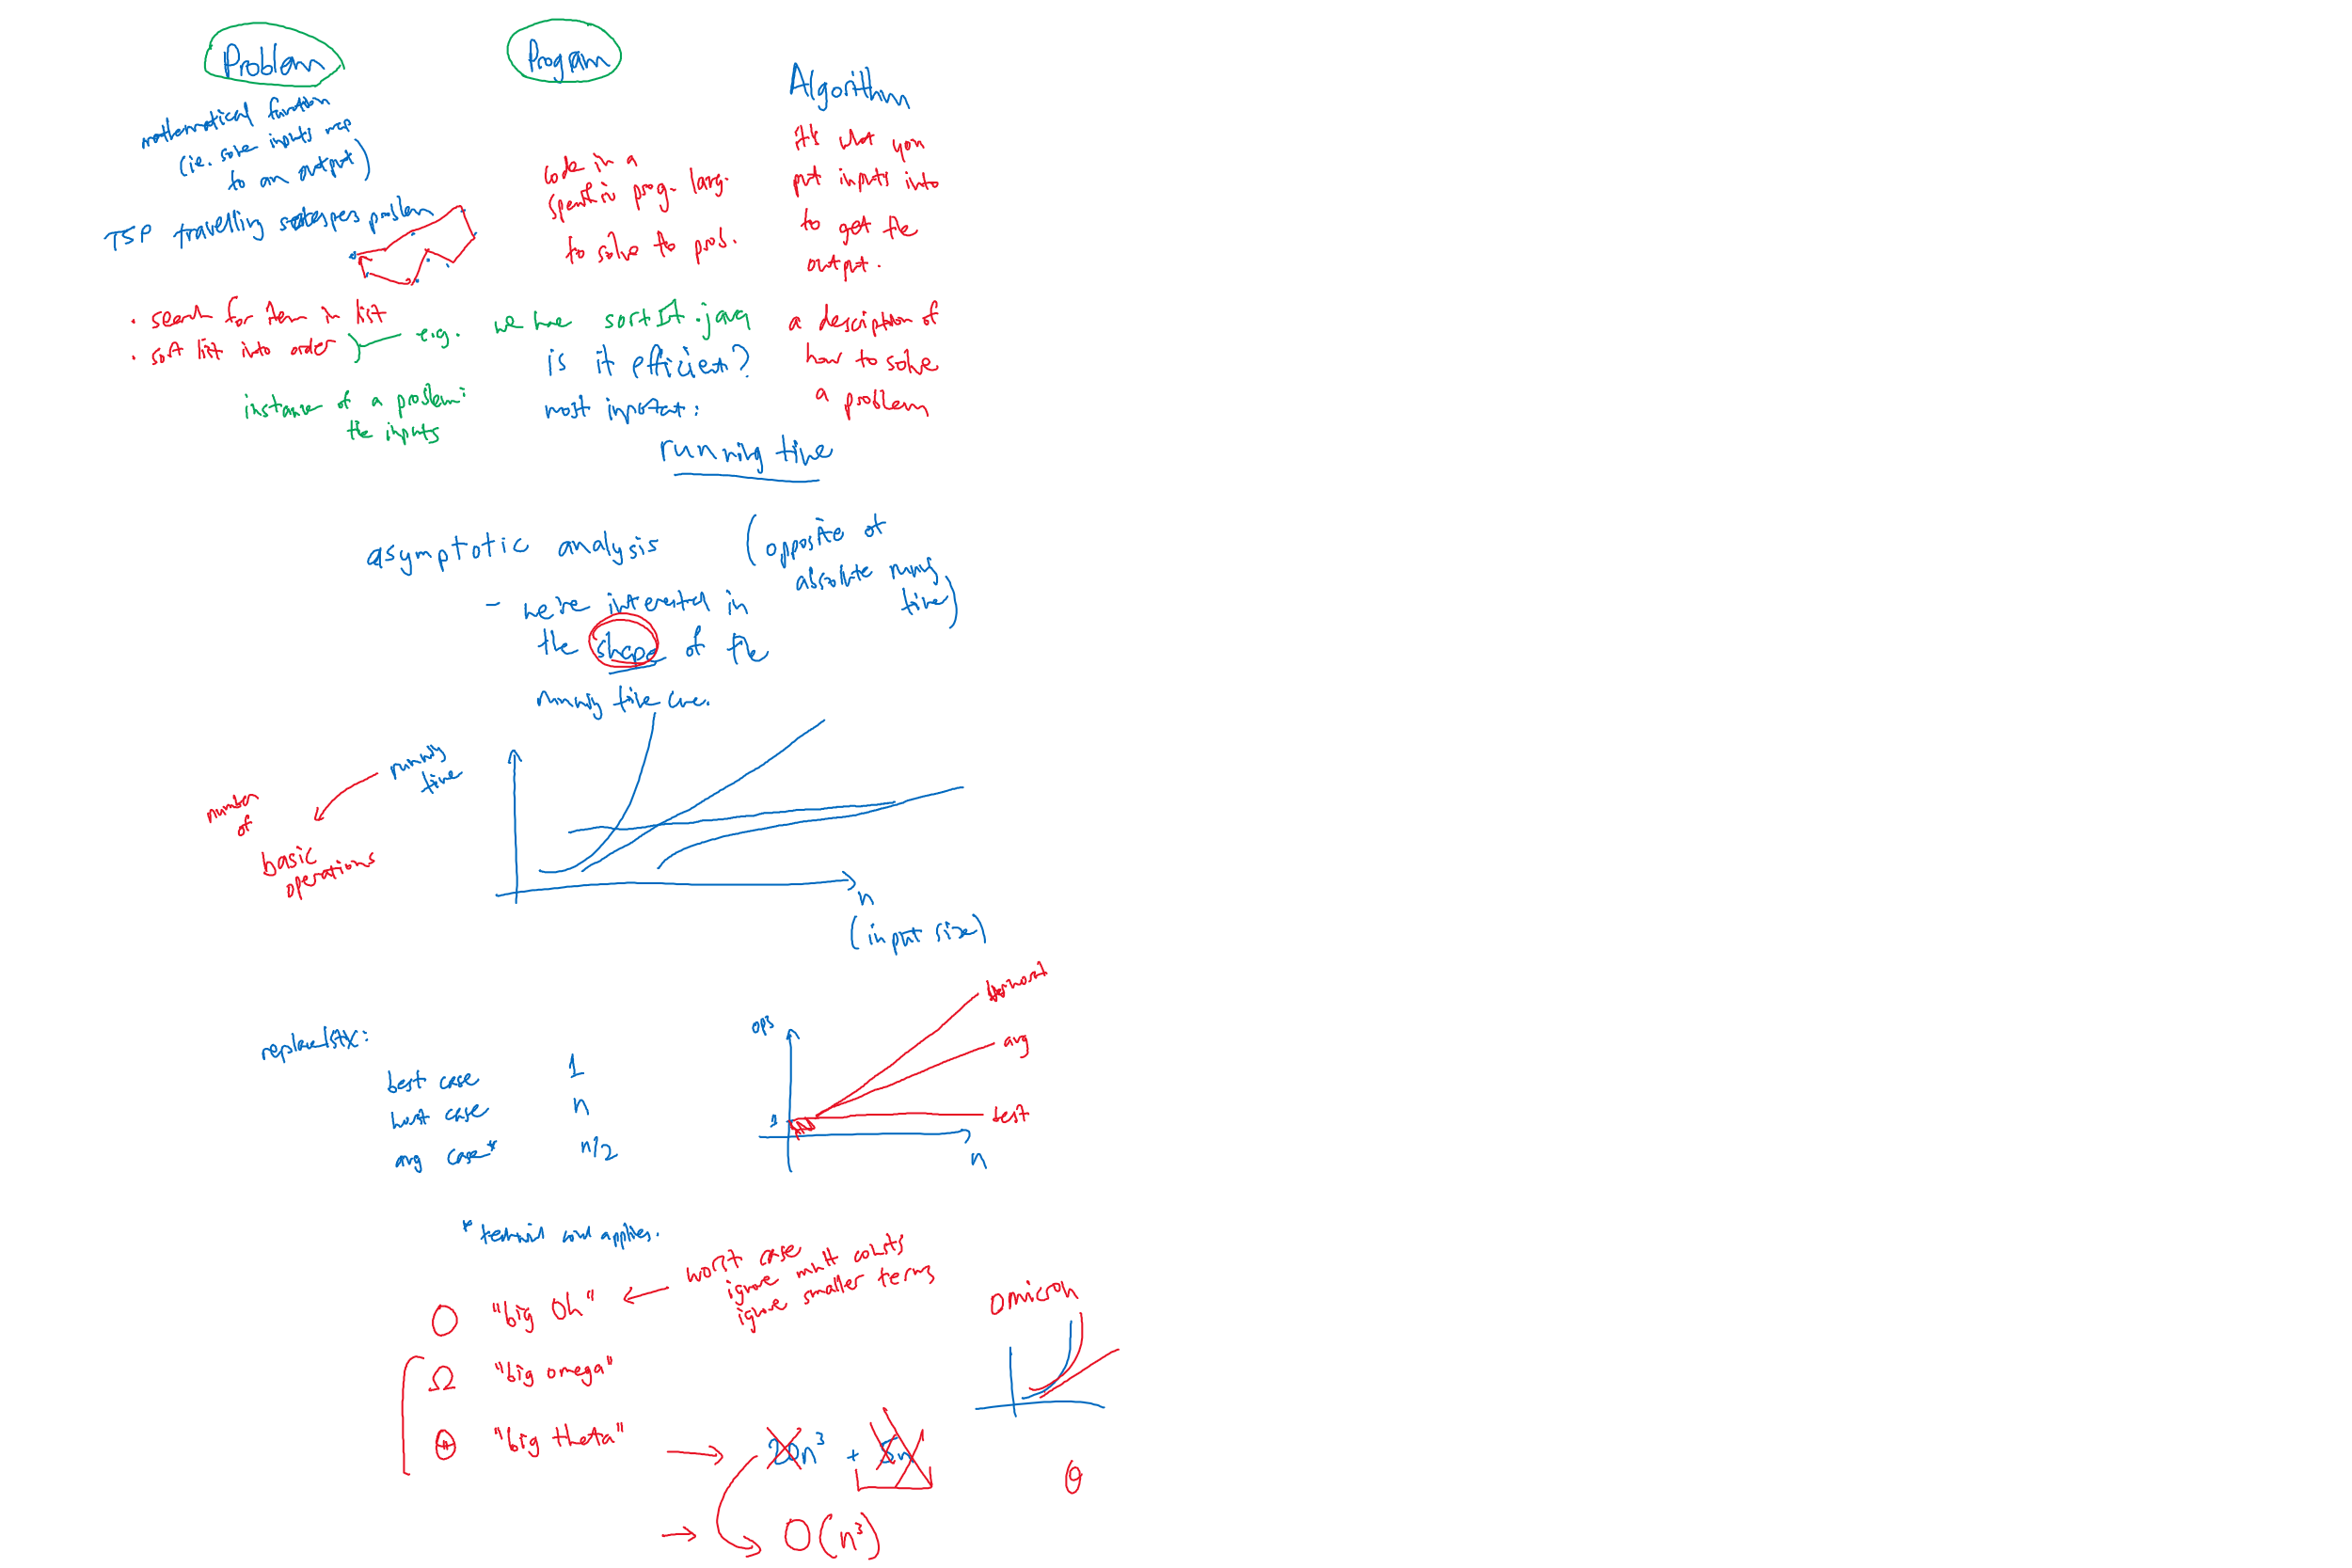 Problem
mathematical function
(ie. some inputs map
to an output)
TSP travelling salespers problem
• search for item in list
• sort list into order
e.g.
instance of a problem:
the inputs
Program
code in a
specific prog. lang.
to solve to prob.
we have sortIt.java
is it efficient?
most important:
running time
Algorithm
it's what you
put inputs into
to get the
output.
a description of
how to solve
a problem
asymptotic analysis
(opposite of
absolute running
time)
- we're interested in
the shape of the
running time curve.
running
time
number
of
basic
operations
n
(input size)
best case 1
worst case n
avg case* n/2
ops
1
worst
avg
best
n
O "big Oh"
worst case
ignore mult consts
ignore smaller terms
Ω "big omega"
Θ "big theta"
20n³ + 5n
O(n³)
omicron
θ